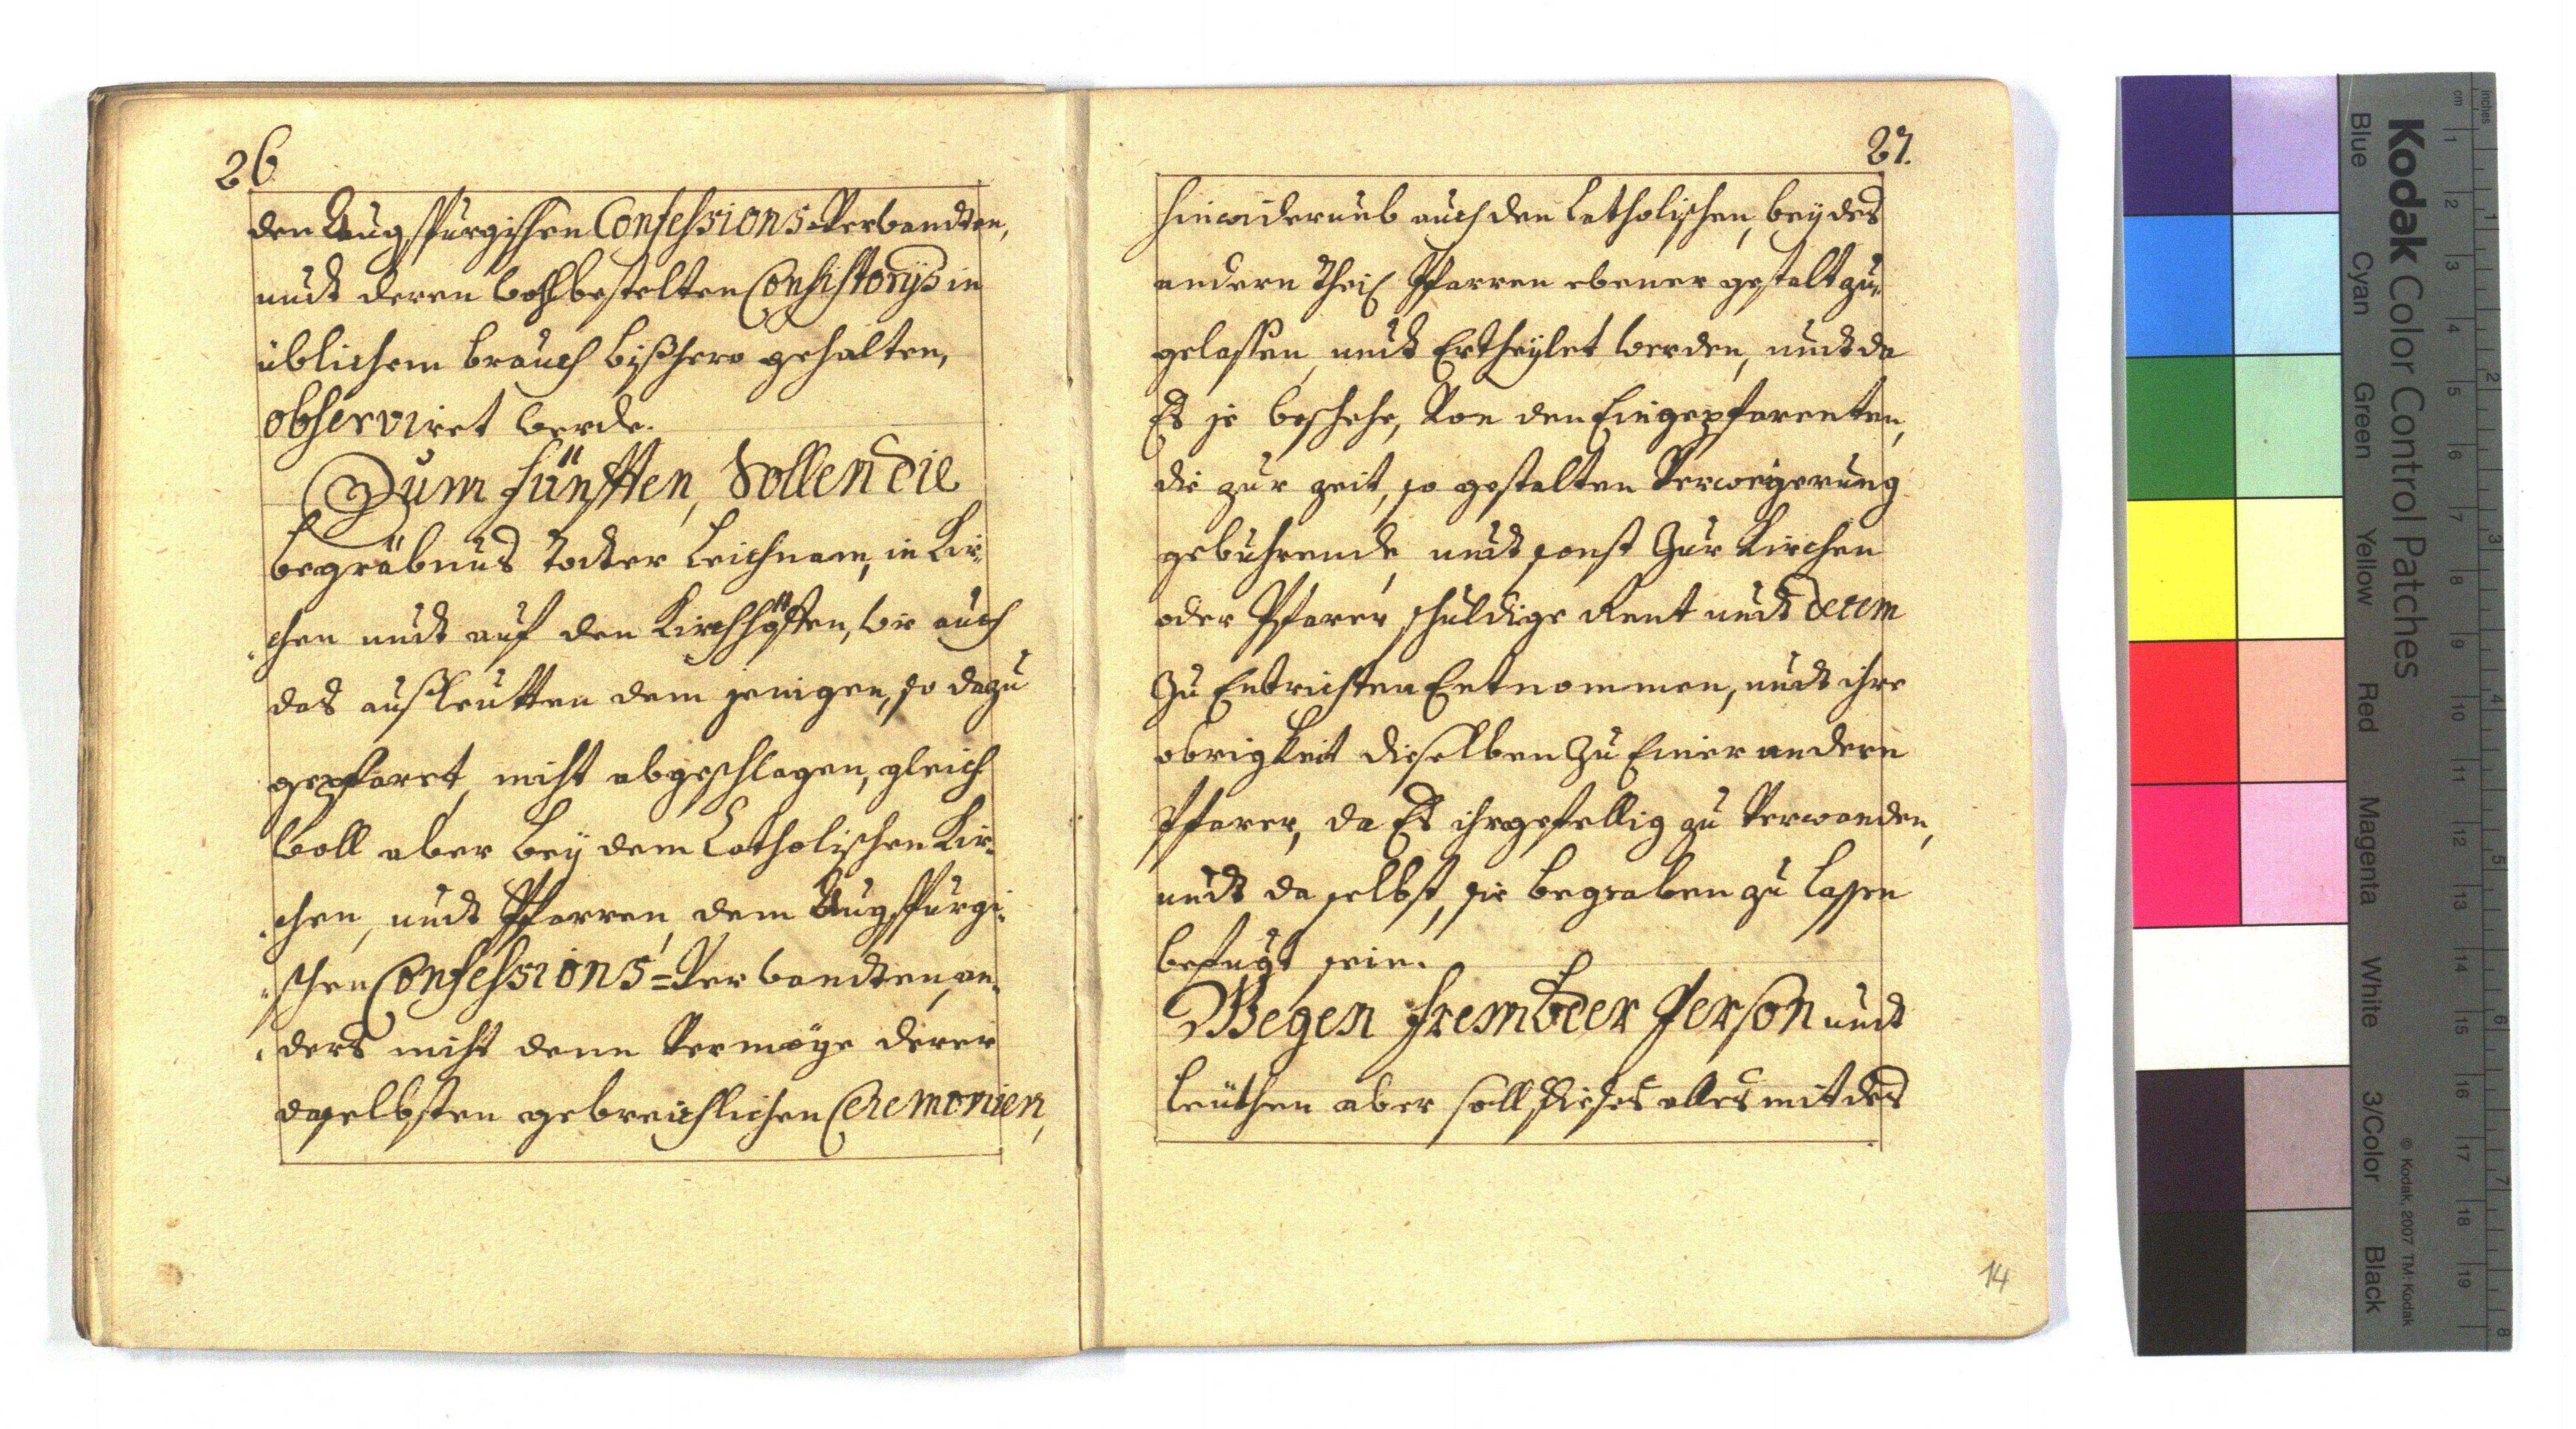 26
den Augspurgischen Confessions-Verwandten,
undt deren wohlbestelten Consistorijs in
üblichem brauch bißhero gehalten,
observiret werde.
Zum fünfften, Sollen die
begräbnus todter Leichnam, in Kir-
chen undt auf den Kirchhöffen, wie auch
das außleutten dem jenigen, so dazu
gepfaret, nicht abgeschlagen, gleich
woll aber bey dem Catholischen Kir-
chen, undt Pfarren, dem Augspurgi-
schen Confessions-Verwandten, an-
ders nicht denn Vermöge derer
daselbsten gebreichlichen Ceremonien,
27.
hinwiderumb auch den Catholischen, bey des
andern theil Pfarren ebener gestalt zu-
gelassen, undt Ertheylet werden, undt da
Es je beschehe, Von den Eingepfarenten,
die zur zeit, so gestalten Verweigerung
gebührende, undt sonst Zur Kirchen
oder Pfarer schuldige Rent undt decem
Zu Entrichten Entnommen, undt ihre
obrigkeit dieselben Zu Einer andern
Pfarer, da Es ihr gefellig zu Verwanden,
undt da selbst, sie begraben zu lassen
befugt sein.
Wegen frembder Person undt
Leuthen aber soll dieses alles mit des
14
Kodak Color Control Patches
Blue Cyan Green Yellow Red Magenta White 3/Color Black
© Kodak, 2007 TM: Kodak
cm 1 2 3 4 5 6 7 8 9 10 11 12 13 14 15 16 17 18 19
inches 1 2 3 4 5 6 7 8